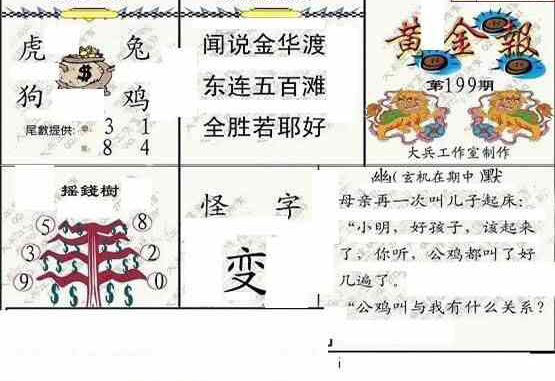 虎 兔
狗 鸡
尾數提供: 3 1
8 4
闻说金华渡
东连五百滩
全胜若耶好
黄金報
第199期
大兵工作室制作
摇錢樹
5 8
3 2
9 0
怪 字
变
幽(玄机在期中)默
母亲再一次叫儿子起床:
“小明，好孩子，该起来
了，你听，公鸡都叫了好
几遍了。
“公鸡叫与我有什么关系?